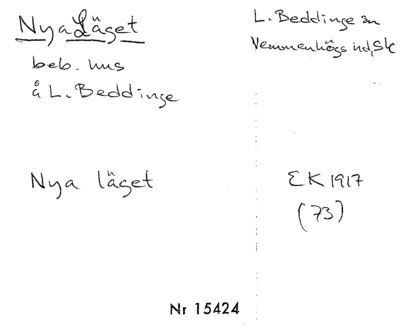 Nya Läget
beb. hus
å L. Beddinge
L. Beddinge sn
Vemmenhögs hd, Sk
Nya läget
EK 1917
(73)
Nr 15424